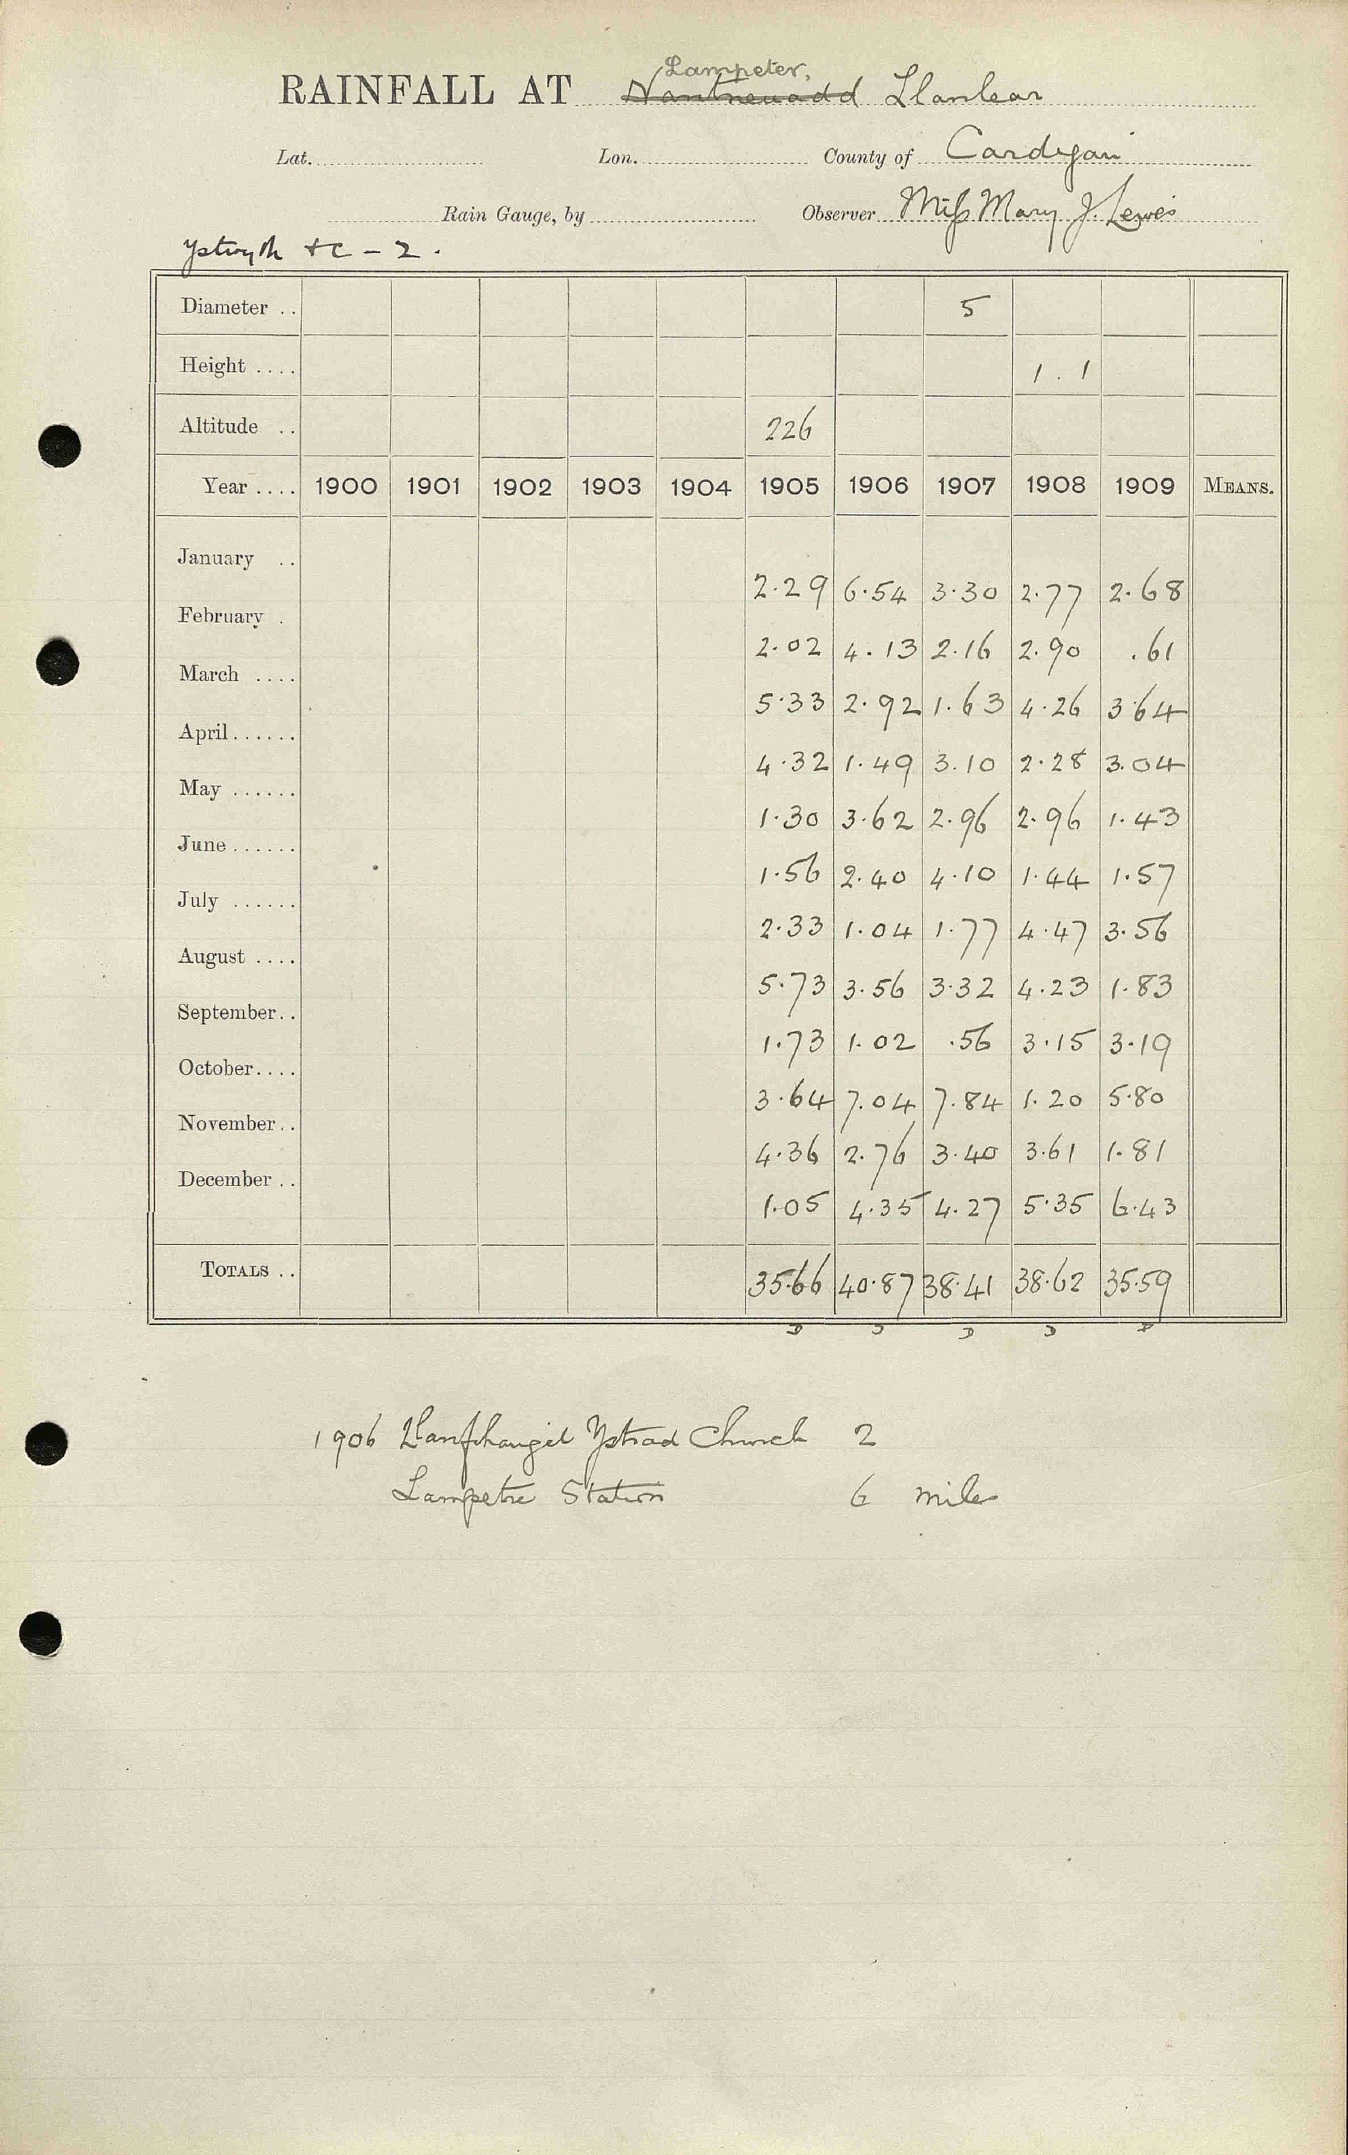 Lampeter,
RAINFALL AT Nantneuadd Llanlear
Lat. Lon. County of Cardigan
Rain Gauge, by Observer Miss Mary J. Lewes
Ystwyth &c - 2.
Diameter .. 5
Height .... 1.1
Altitude .. 226
Year .... 1900 1901 1902 1903 1904 1905 1906 1907 1908 1909 MEANS.
January .. 2.29 6.54 3.30 2.77 2.68
February . 2.02 4.13 2.16 2.90 .61
March .... 5.33 2.92 1.63 4.26 3.64
April ...... 4.32 1.49 3.10 2.28 3.04
May ...... 1.30 3.62 2.96 2.96 1.43
June ...... 1.56 2.40 4.10 1.44 1.57
July ...... 2.33 1.04 1.77 4.47 3.56
August .... 5.73 3.56 3.32 4.23 1.83
September.. 1.73 1.02 .56 3.15 3.19
October.... 3.64 7.04 7.84 1.20 5.80
November.. 4.36 2.76 3.40 3.61 1.81
December .. 1.05 4.35 4.27 5.35 6.43
TOTALS .. 35.66 40.87 38.41 38.62 35.59
1906 Llanfihangel Ystrad Church 2
Lampeter Station 6 miles